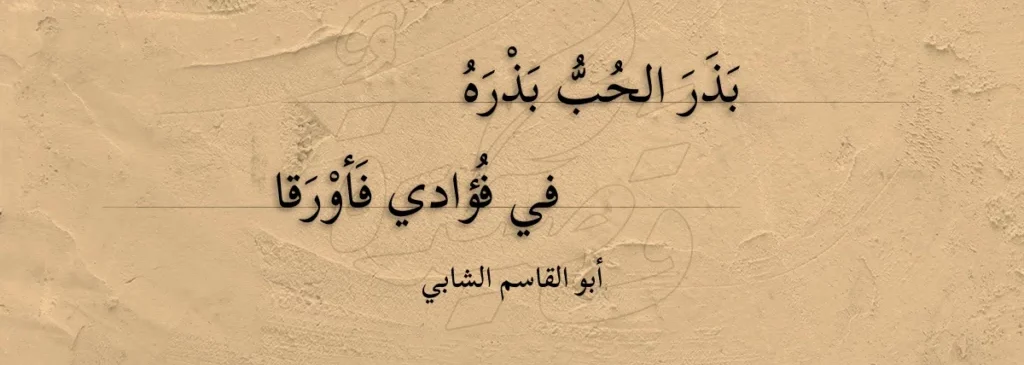 بَذَرَ الحُبُّ بَذْرَهُ
في فُؤادي فَأوْرَقا
أبو القاسم الشابي